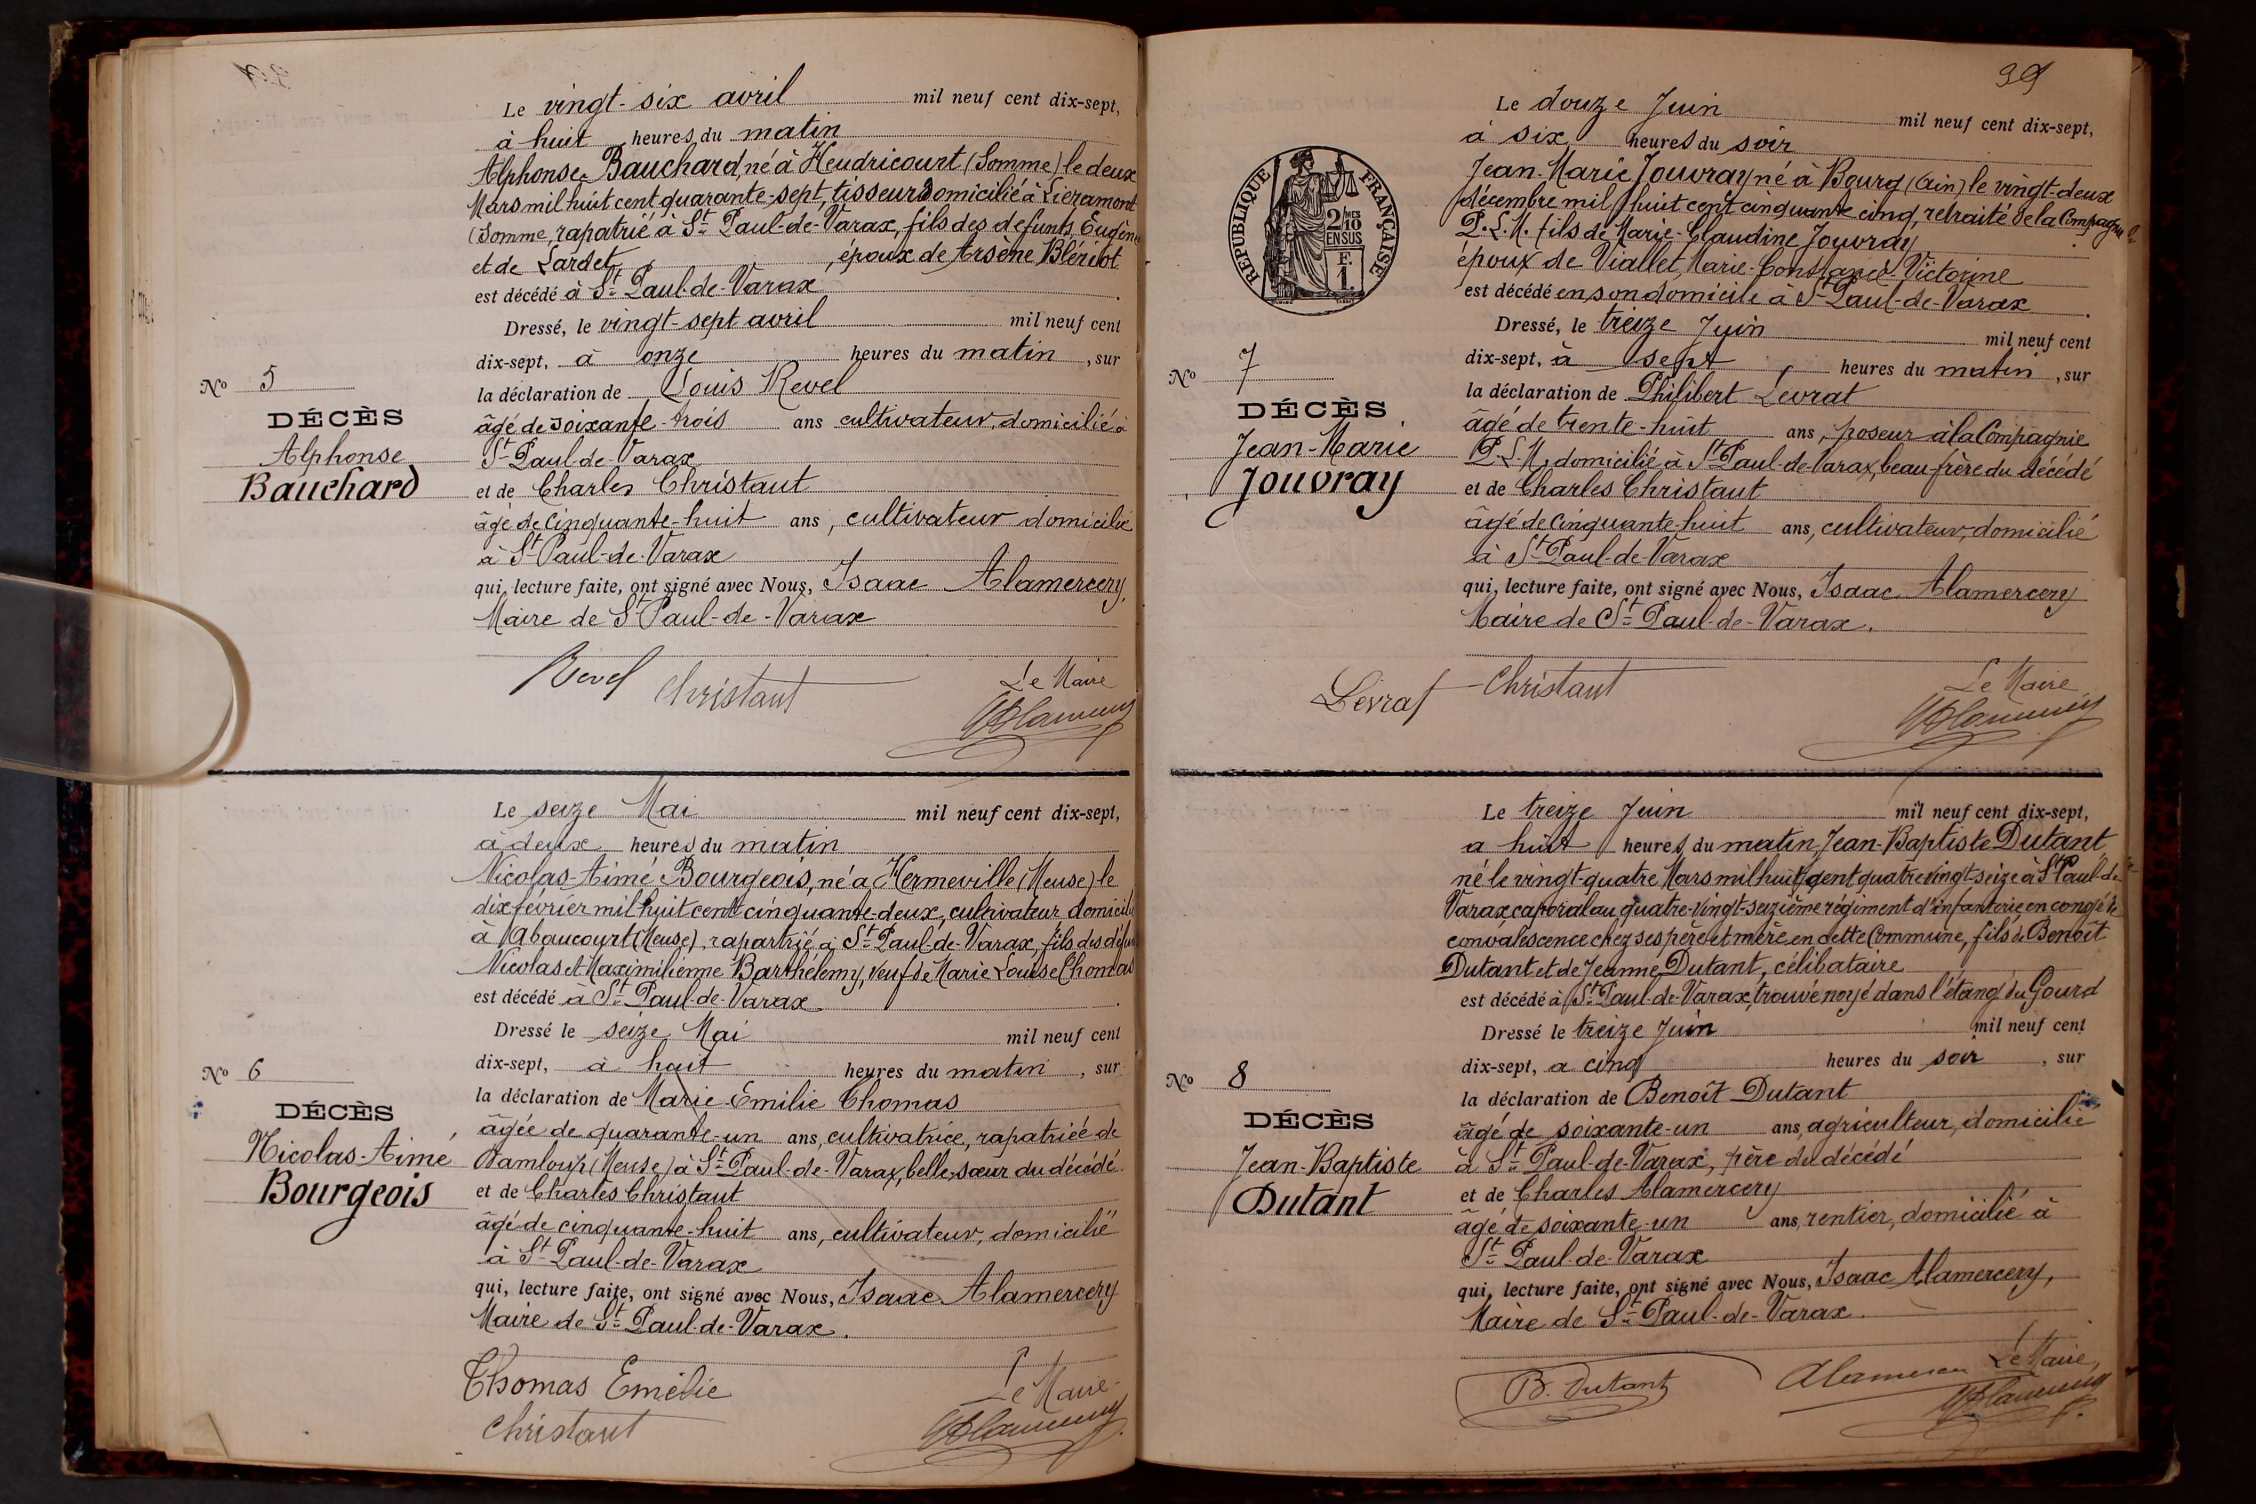 Le vingt-six avril mil neuf cent dix-sept,
à huit heures du matin
Alphonse Bauchard, né à Heudricourt (Somme) le deux
Mars mil huit cent quarante-sept, tisseur domicilié à Lieramont
(Somme, rapatrié à St Paul-de-Varax, fils des defunts Eugène
et de Lardet, époux de Arsène Blériot
est décédé à St Paul-de-Varax
Dressé, le vingt-sept avril mil neuf cent
dix-sept, à onze heures du matin, sur
la déclaration de Louis Revel
âgé de soixante-trois ans cultivateur, domicilié à
St Paul-de-Varax
et de Charles Christaut
âgé de cinquante-huit ans, cultivateur domicilié
à St Paul-de-Varax
qui, lecture faite, ont signé avec Nous, Isaac Alamercery,
Maire de St Paul-de-Varax
Revel Christaut Le Maire
Alamercery
No 5
DÉCÈS
Alphonse
Bauchard
Le seize Mai mil neuf cent dix-sept,
à deux heures du matin
Nicolas-Aimé Bourgeois, né à Hermeville (Meuse) le
dix février mil huit cent cinquante-deux, cultivateur domicilié
à Abaucourt (Meuse), rapartrié à St Paul-de-Varax, fils des défun
Nicolas et Maximilienne Barthélemy, veuf de Marie Louise Thomas
est décédé à St Paul-de-Varax
Dressé le seize Mai mil neuf cent
dix-sept, à huit heures du matin, sur
la déclaration de Marie-Emilie Thomas
âgée de quarante-un ans, cultivatrice, rapatriée de
Damloup (Meuse) à St Paul-de-Varax, belle sœur du décédé.
et de Charles Christaut
âgé de cinquante-huit ans, cultivateur, domicilié
à St Paul-de-Varax
qui, lecture faite, ont signé avec Nous, Isaac Alamercery
Maire de St Paul-de-Varax.
Thomas Emélie Le Maire
Christaut Alamercery
No 6
DÉCÈS
Nicolas-Aimé
Bourgeois
39
Le douze Juin mil neuf cent dix-sept,
à six heures du soir
Jean-Marie Jouvray né à Bourg (Ain) le vingt-deux
décembre mil huit cent cinquante cinq, retraité de la Compagnie
P.L.M. fils de Marie-Claudine Jouvray
époux de Viallet, Marie-Constance-Victorine
est décédé en son domicile à St Paul-de-Varax
Dressé, le treize Juin mil neuf cent
dix-sept, à sept heures du matin, sur
la déclaration de Philibert Levrat
âgé de trente-huit ans, poseur à la Compagnie
P.L.M. domicilié à St Paul-de-Varax, beau frère du décédé
et de Charles Christaut
âgé de cinquante-huit ans, cultivateur, domicilié
à St Paul-de-Varax
qui, lecture faite, ont signé avec Nous, Isaac Alamercery
Maire de St Paul-de-Varax.
Levrat Christaut Le Maire
Alamercery
RÉPUBLIQUE FRANÇAISE
2/10 EN SUS
F.
1.
No 7
DÉCÈS
Jean-Marie
Jouvray
Le treize Juin mil neuf cent dix-sept,
a huit heures du matin, Jean-Baptiste Dutant
né le vingt-quatre Mars mil huit cent quatre vingt-seize à St Paul-de-
Varax caporal au quatre-vingt-seizième régiment d'infanterie en congé de
convalescence chez ses père et mère en cette Commune, fils de Benoît
Dutant et de Jeanne Dutant, célibataire
est décédé à St Paul-de-Varax, trouvé noyé dans l'étang du Gourd
Dressé le treize Juin mil neuf cent
dix-sept, a cinq heures du soir, sur
la déclaration de Benoît Dutant
âgé de soixante-un ans, agriculteur, domicilié
à St Paul-de-Varax, père du décédé
et de Charles Alamercery
âgé de soixante-un ans, rentier, domicilié à
St Paul-de-Varax
qui, lecture faite, ont signé avec Nous, Isaac Alamercery,
Maire de St Paul-de-Varax.
B. Dutant Alamercery Le Maire,
Alamercery
No 8
DÉCÈS
Jean-Baptiste
Dutant